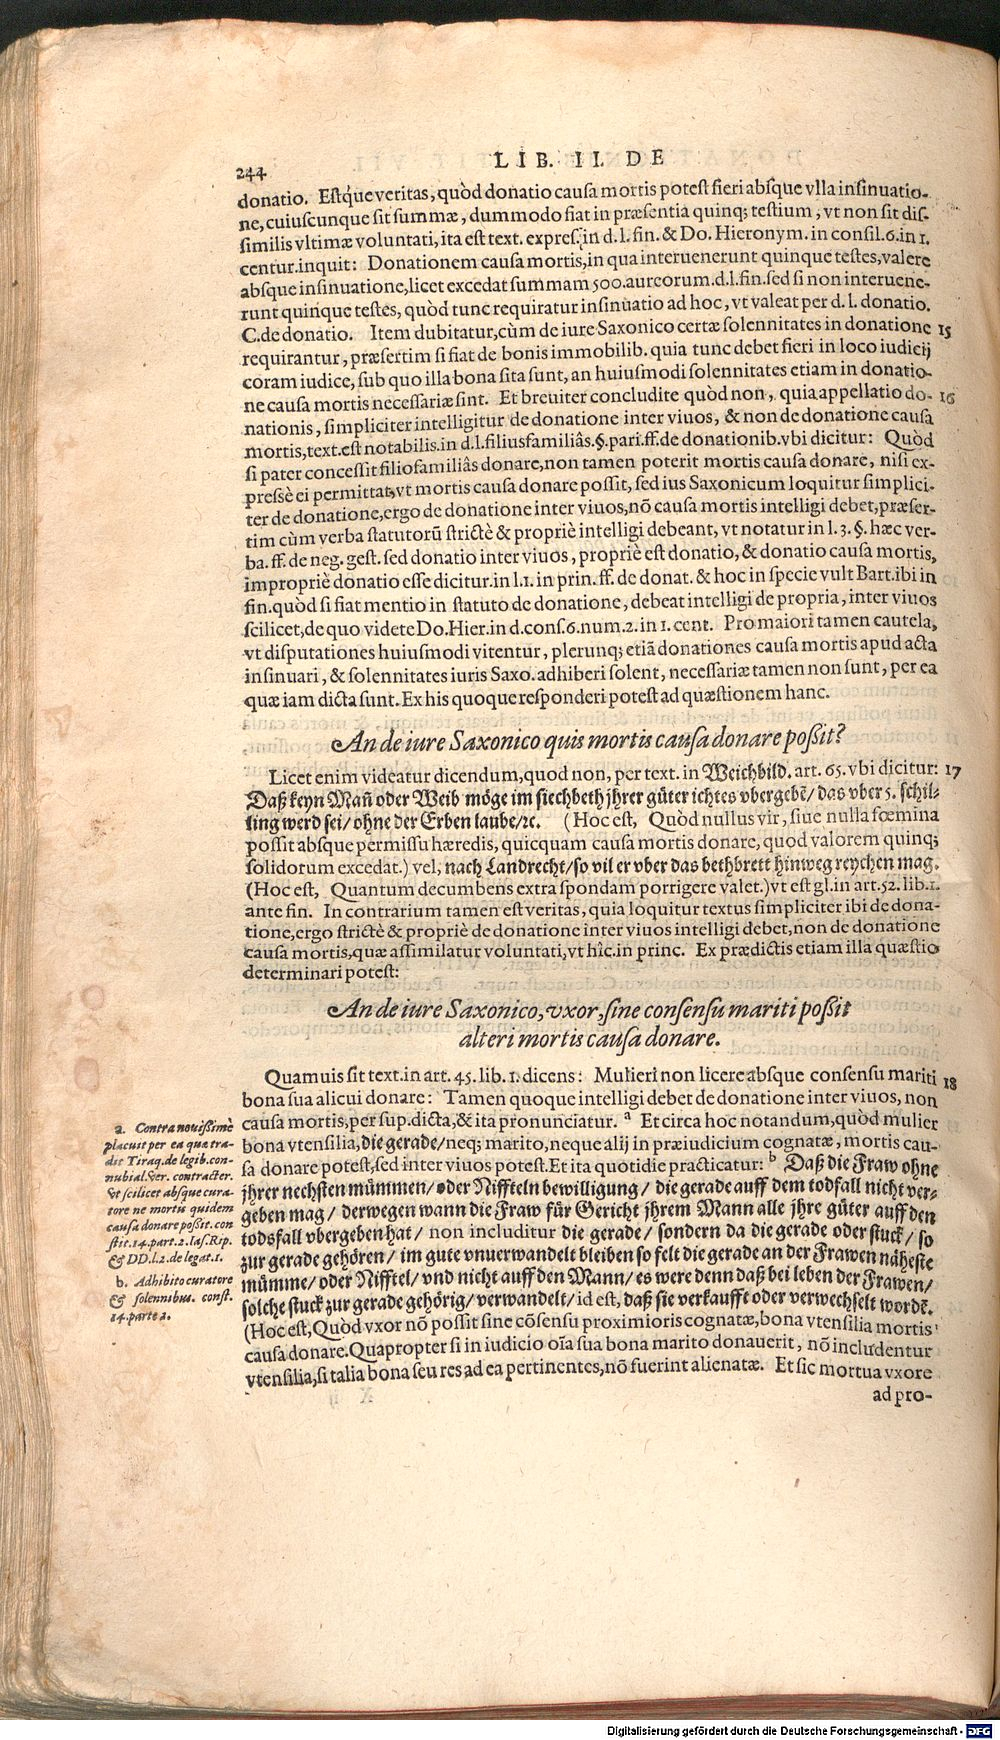 244
LIB. II. DE
donatio. Estq́ue veritas, quòd donatio causa mortis potest fieri absque vlla insinuatio-
ne, cuiuscunque sit summæ, dummodo fiat in præsentia quinq; testium, vt non sit dis-
similis vltimæ voluntati, ita est text. expres. in d. l. fin. & Do. Hieronym. in consil. 6. in 1.
centur. inquit: Donationem causa mortis, in qua interuenerunt quinque testes, valere
absque insinuatione, licet excedat summam 500. aureorum. d. l. fin. sed si non interuene-
runt quinque testes, quòd tunc requiratur insinuatio ad hoc, vt valeat per d. l. donatio.
C. de donatio. Item dubitatur, cùm de iure Saxonico certæ solennitates in donatione 15
requirantur, præsertim si fiat de bonis immobilib. quia tunc debet fieri in loco iudicij
coram iudice, sub quo illa bona sita sunt, an huiusmodi solennitates etiam in donatio-
ne causa mortis necessariæ sint. Et breuiter concludite quòd non, quia appellatio do- 16
nationis, simpliciter intelligitur de donatione inter viuos, & non de donatione causa
mortis, text. est notabilis. in d. l. filiusfamiliâs. §. pari. ff. de donationib. vbi dicitur: Quòd
si pater concessit filiofamiliâs donare, non tamen poterit mortis causa donare, nisi ex-
pressè ei permittat, vt mortis causa donare possit, sed ius Saxonicum loquitur simplici-
ter de donatione, ergo de donatione inter viuos, nō causa mortis intelligi debet, præser-
tim cùm verba statutorū strictè & propriè intelligi debeant, vt notatur in l. 3. §. hæc ver-
ba. ff. de neg. gest. sed donatio inter viuos, propriè est donatio, & donatio causa mortis,
impropriè donatio esse dicitur. in l. 1. in prin. ff. de donat. & hoc in specie vult Bart. ibi in
fin. quòd si fiat mentio in statuto de donatione, debeat intelligi de propria, inter viuos
scilicet, de quo videte Do. Hier. in d. cons. 6. num. 2. in 1. cent. Pro maiori tamen cautela,
vt disputationes huiusmodi vitentur, plerunq; etiā donationes causa mortis apud acta
insinuari, & solennitates iuris Saxo. adhiberi solent, necessariæ tamen non sunt, per ea
quæ iam dicta sunt. Ex his quoque responderi potest ad quæstionem hanc.
An de iure Saxonico quis mortis causa donare poßit?
Licet enim videatur dicendum, quod non, per text. in Weichbild. art. 65. vbi dicitur: 17
Daß keyn Mañ oder Weib möge im siechbeth jhrer güter ichtes vbergebē/ das vber 5. schil-
ling werd sei/ ohne der Erben laube/ ꝛc. (Hoc est, Quòd nullus vir, siue nulla fœmina
possit absque permissu hæredis, quicquam causa mortis donare, quod valorem quinq;
solidorum excedat.) vel, nach Landrecht/ so vil er vber das bethbrett hinweg reychen mag.
(Hoc est, Quantum decumbens extra spondam porrigere valet.) vt est gl. in art. 52. lib. 1.
ante fin. In contrarium tamen est veritas, quia loquitur textus simpliciter ibi de dona-
tione, ergo strictè & propriè de donatione inter viuos intelligi debet, non de donatione
causa mortis, quæ assimilatur voluntati, vt hîc. in princ. Ex prædictis etiam illa quæstio
determinari potest:
An de iure Saxonico, vxor, sine consensu mariti poßit
alteri mortis causa donare.
Quamuis sit text. in art. 45. lib. 1. dicens: Mulieri non licere absque consensu mariti 18
bona sua alicui donare: Tamen quoque intelligi debet de donatione inter viuos, non
causa mortis, per sup. dicta, & ita pronunciatur. a Et circa hoc notandum, quòd mulier
bona vtensilia, die gerade/ neq; marito, neque alij in præiudicium cognatæ, mortis cau-
sa donare potest, sed inter viuos potest. Et ita quotidie practicatur: b Daß die Fraw ohne
jhrer nechsten mümmen/ oder Niffteln bewilligung/ die gerade auff dem todfall nicht ver-
geben mag/ derwegen wann die Fraw für Gericht jhrem Mann alle jhre güter auff den
todsfall vbergeben hat/ non includitur die gerade/ sondern da die gerade oder stuck/ so
zur gerade gehören/ im gute vnuerwandelt bleiben so felt die gerade an der Frawen näheste
mümme/ oder Nifftel/ vnd nicht auff den Mann/ es were denn daß bei leben der Frawen/
solche stuck zur gerade gehörig/ verwandelt/ id est, daß sie verkaufft oder verwechselt wordē.
(Hoc est, Quòd vxor nō possit sine cōsensu proximioris cognatæ, bona vtensilia mortis
causa donare. Quapropter si in iudicio oīa sua bona marito donauerit, nō includentur
vtensilia, si talia bona seu res ad ea pertinentes, nō fuerint alienatæ. Et sic mortua vxore
ad pro-
a. Contra nouißimè
placuit per ea quæ tra-
dit Tiraq. de legib. con-
nubial. ver. contracter.
vt scilicet absque cura-
tore ne mortis quidem
causa donare poßit. con
stit. 14. part. 2. Ias. Rip.
& DD. l. 2. de legat. 1.
b. Adhibito curatore
& solennibus. const.
14. parte 2.
Digitalisierung gefördert durch die Deutsche Forschungsgemeinschaft - DFG